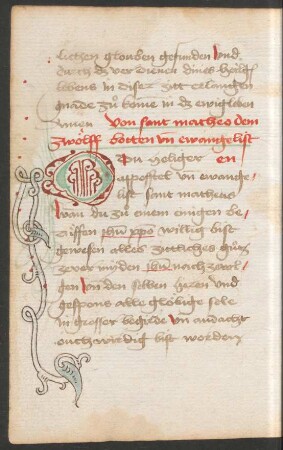 lichen glouben gefunden Und
durch dz ver dienen dines heilgē
lebens in diser zitt erlangen
gnade zů kome in dz ewig leben
Amen Von sant matheo dem
zwölff botten vn̄ ewangelist
O Du heliger en
appostel vn̄ ewange
list sant matheus
wan du zu einem einigen be
růffen jhū xpō willig bist
gewesen alles zittliches gůtz
ze ver miden jhm nach zevol
gen Von den selben heren vnd
gespons alle glöbige sele
In grosser begirde vn̄ andacht
ouch wirdig bist worden